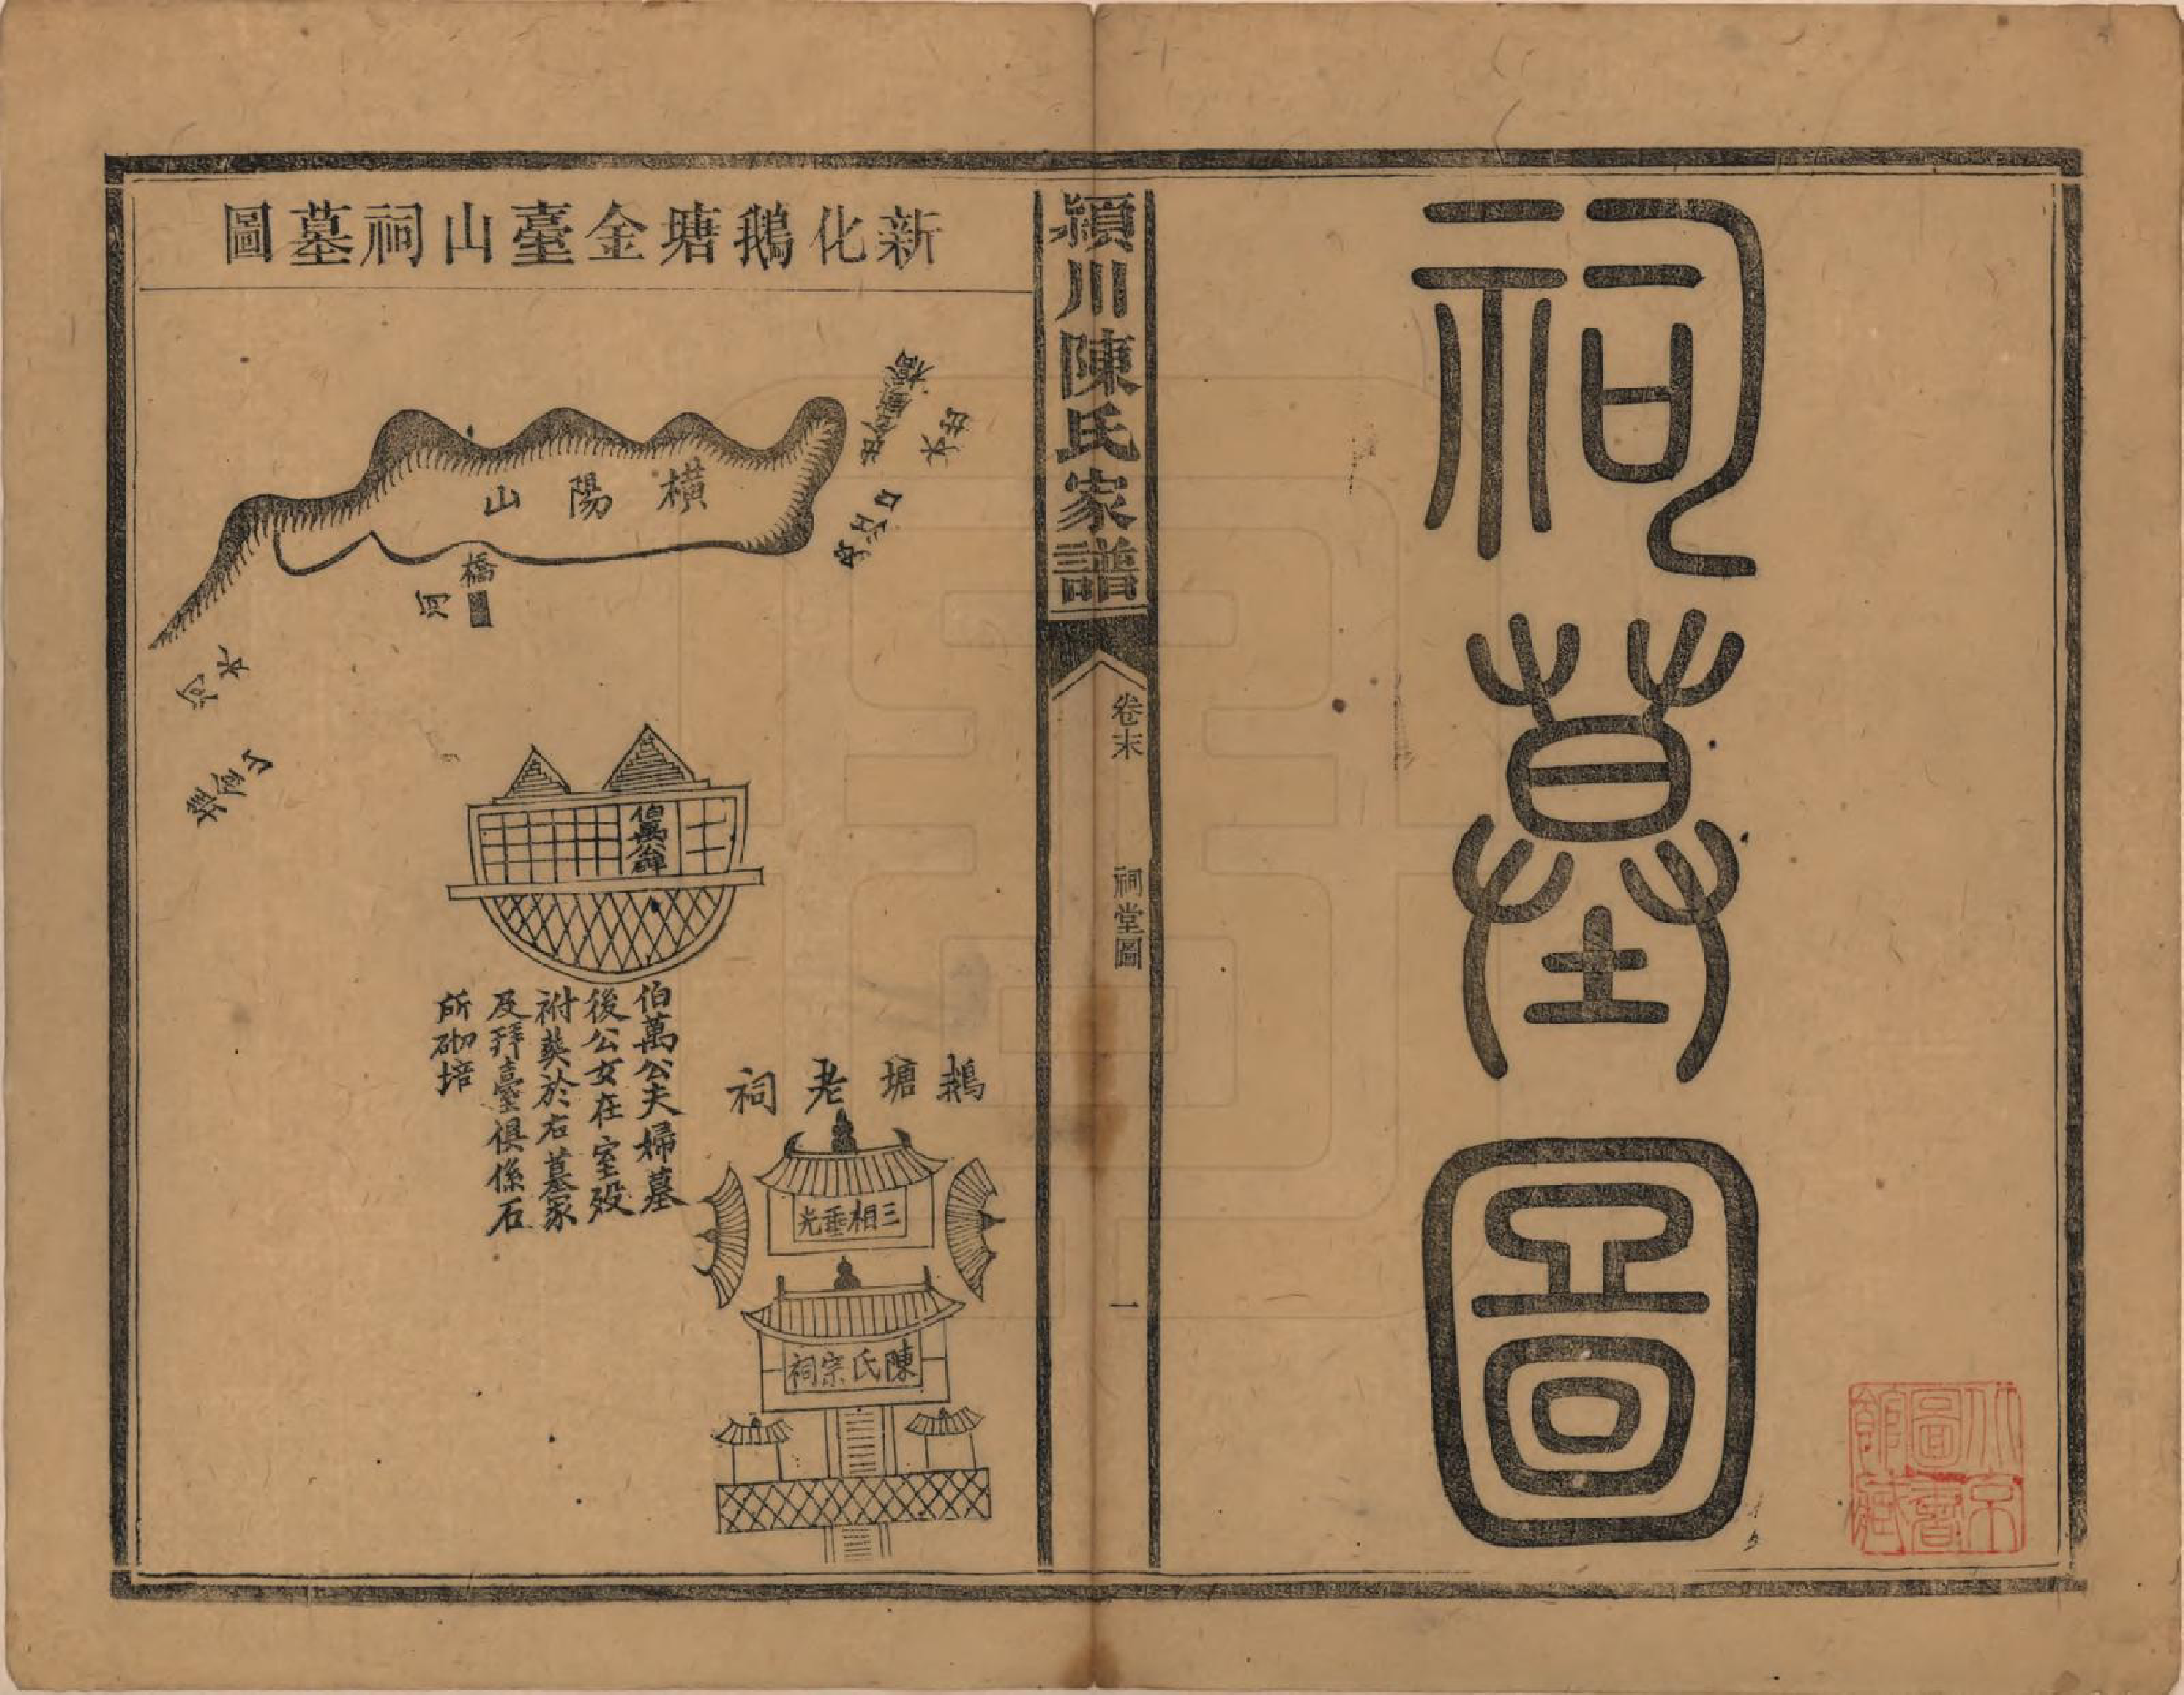 祠墓圖
北京圖書館藏
潁川陳氏家譜
卷末
祠堂圖
一
新化鵝塘金臺山祠墓圖
橫陽山
橋
河
水
河
口
江
伯萬公碑
伯萬公夫婦墓
後公女在室歿
祔葬於右墓冢
及拜臺俱係石
所砌培
鵝塘老祠
三相垂光
陳氏宗祠